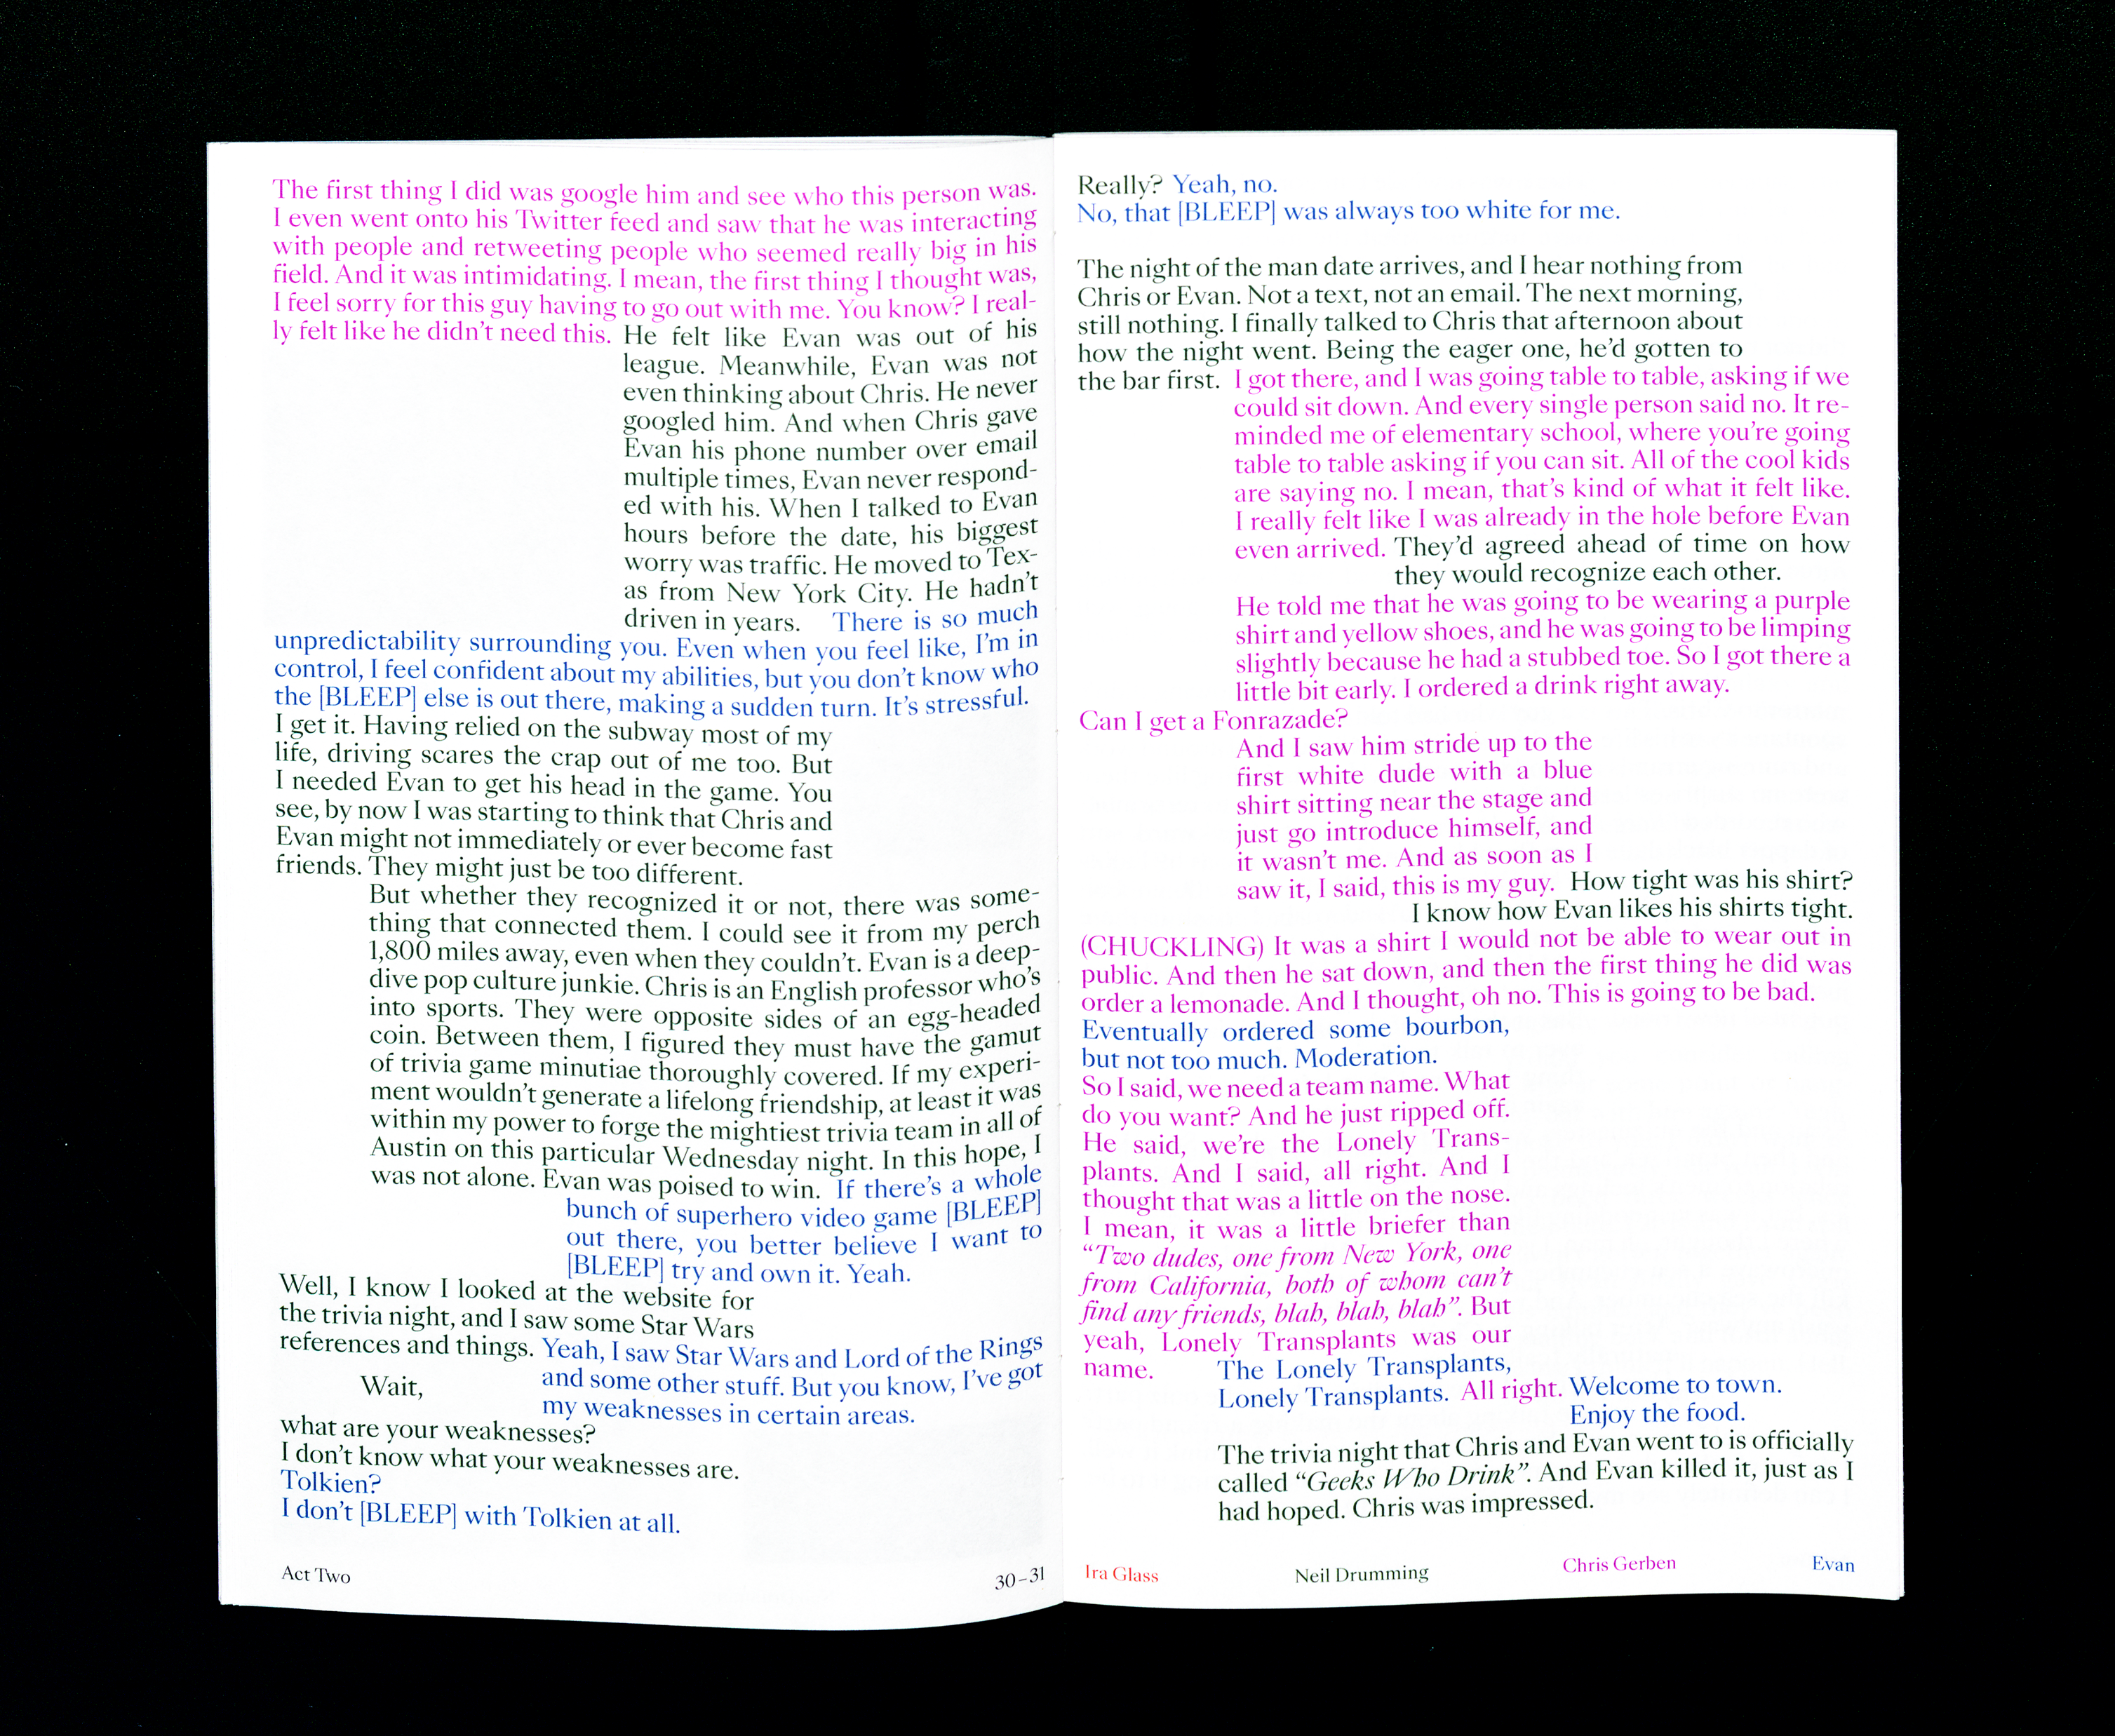 The first thing I did was google him and see who this person was.
I even went onto his Twitter feed and saw that he was interacting
with people and retweeting people who seemed really big in his
field. And it was intimidating. I mean, the first thing I thought was,
I feel sorry for this guy having to go out with me. You know? I real-
ly felt like he didn't need this. He felt like Evan was out of his
league. Meanwhile, Evan was not
even thinking about Chris. He never
googled him. And when Chris gave
Evan his phone number over email
multiple times, Evan never respond-
ed with his. When I talked to Evan
hours before the date, his biggest
worry was traffic. He moved to Tex-
as from New York City. He hadn't
driven in years. There is so much
unpredictability surrounding you. Even when you feel like, I'm in
control, I feel confident about my abilities, but you don't know who
the [BLEEP] else is out there, making a sudden turn. It's stressful.
I get it. Having relied on the subway most of my
life, driving scares the crap out of me too. But
I needed Evan to get his head in the game. You
see, by now I was starting to think that Chris and
Evan might not immediately or ever become fast
friends. They might just be too different.
But whether they recognized it or not, there was some-
thing that connected them. I could see it from my perch
1,800 miles away, even when they couldn't. Evan is a deep-
dive pop culture junkie. Chris is an English professor who's
into sports. They were opposite sides of an egg-headed
coin. Between them, I figured they must have the gamut
of trivia game minutiae thoroughly covered. If my experi-
ment wouldn't generate a lifelong friendship, at least it was
within my power to forge the mightiest trivia team in all of
Austin on this particular Wednesday night. In this hope, I
was not alone. Evan was poised to win. If there's a whole
bunch of superhero video game [BLEEP]
out there, you better believe I want to
[BLEEP] try and own it. Yeah.
Well, I know I looked at the website for
the trivia night, and I saw some Star Wars
references and things. Yeah, I saw Star Wars and Lord of the Rings
and some other stuff. But you know, I've got
my weaknesses in certain areas.
Wait,
what are your weaknesses?
I don't know what your weaknesses are.
Tolkien?
I don't [BLEEP] with Tolkien at all.
Act Two
30–31
Really? Yeah, no.
No, that [BLEEP] was always too white for me.
The night of the man date arrives, and I hear nothing from
Chris or Evan. Not a text, not an email. The next morning,
still nothing. I finally talked to Chris that afternoon about
how the night went. Being the eager one, he'd gotten to
the bar first. I got there, and I was going table to table, asking if we
could sit down. And every single person said no. It re-
minded me of elementary school, where you're going
table to table asking if you can sit. All of the cool kids
are saying no. I mean, that's kind of what it felt like.
I really felt like I was already in the hole before Evan
even arrived. They'd agreed ahead of time on how
they would recognize each other.
He told me that he was going to be wearing a purple
shirt and yellow shoes, and he was going to be limping
slightly because he had a stubbed toe. So I got there a
little bit early. I ordered a drink right away.
Can I get a Fonrazade?
And I saw him stride up to the
first white dude with a blue
shirt sitting near the stage and
just go introduce himself, and
it wasn't me. And as soon as I
saw it, I said, this is my guy. How tight was his shirt?
I know how Evan likes his shirts tight.
(CHUCKLING) It was a shirt I would not be able to wear out in
public. And then he sat down, and then the first thing he did was
order a lemonade. And I thought, oh no. This is going to be bad.
Eventually ordered some bourbon,
but not too much. Moderation.
So I said, we need a team name. What
do you want? And he just ripped off.
He said, we're the Lonely Trans-
plants. And I said, all right. And I
thought that was a little on the nose.
I mean, it was a little briefer than
“Two dudes, one from New York, one
from California, both of whom can't
find any friends, blah, blah, blah”. But
yeah, Lonely Transplants was our
name. The Lonely Transplants,
Lonely Transplants. All right. Welcome to town.
Enjoy the food.
The trivia night that Chris and Evan went to is officially
called “Geeks Who Drink”. And Evan killed it, just as I
had hoped. Chris was impressed.
Ira Glass
Neil Drumming
Chris Gerben
Evan